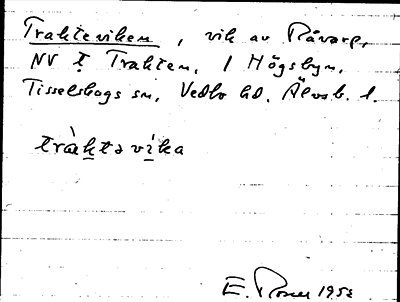 Trakteviken, vik av Råvarp,
NV t Trakten, 1 Högsbyn,
Tisselskogs sn, Vedbo hd, Älvsb. l.
tràktavika
E. 1953